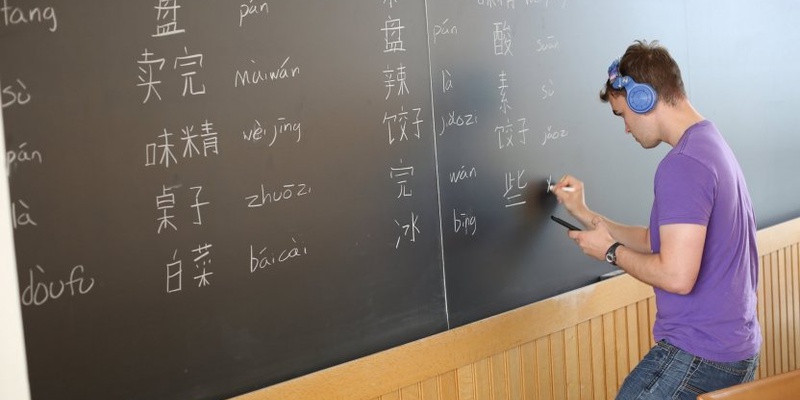 tang
sù
pán
là
dòufu
盘 pán
卖完 màiwán
味精 wèijīng
桌子 zhuōzi
白菜 báicài
盘 pán
辣 là
饺子 jiǎozi
完 wán
冰 bīng
酸 suān
素 sù
饺子 jiǎozi
些